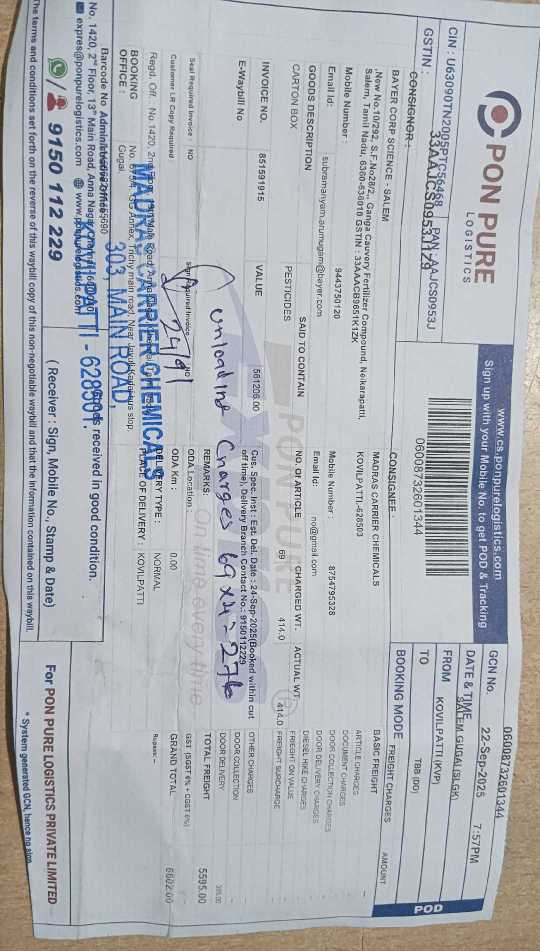 PON PURE
LOGISTICS
www.cs.ponpurelogistics.com
Sign up with your Mobile No. to get POD & Tracking
GCN No.
06008732601344
CIN : U63090TN2005PTC56468 PAN : AAJCS0953J
GSTIN : 33AAJCS0953J1Z9
06008732601344
DATE & TIME 22-Sep-2025 7:57PM
FROM SALEM GUGAI(SLGK)
TO KOVILPATTI (KVP)
BOOKING MODE TBB (DD)
POD
CONSIGNOR :
BAYER CORP SCIENCE - SALEM
,New No.10/292, S.F.No28/2,, Ganga Cauvery Fertilizer Compound, Neikarapatti,
Salem, Tamil Nadu, 6360-636010 GSTIN : 33AAACB9651K1ZK
Mobile Number : 9443750120
Email Id:
CONSIGNEE :
MADRAS CARRIER CHEMICALS
KOVILPATTI.-628503
Mobile Number : 8754795328
Email Id: no@gmail.com
GOODS DESCRIPTION SAID TO CONTAIN NO. OF ARTICLE CHARGED WT. ACTUAL WT.
CARTON BOX PESTICIDES 69 414.0 414.0
INVOICE NO. 851591915 VALUE 561206.00
E-Waybill No
Cus. Spec. Inst : Est. Del. Date : 24-Sep-2025(Booked within cut
off time), Delivery Branch Contact No.: 9150112229
REMARKS:
unloading Charges 69x4=276
24/9
PON PURE
On time every time
Seal Required Invoice NO
Sign Required Invoice NO
Customer LR Copy Required
ODA Location :
ODA Km : 0.00
DELIVERY TYPE : NORMAL
PLACE OF DELIVERY : KOVILPATTI
BOOKING
OFFICE :
Gugai
MADRAS CARRIER CHEMICALS
303, MAIN ROAD,
KOVILPATTI - 628501.
FREIGHT CHARGES AMOUNT
BASIC FREIGHT
ARTICLE CHARGES
DOCUMENT CHARGES
DOOR COLLECTION CHARGES
DOOR DELIVERY CHARGES
DIESEL HIKE CHARGES
FREIGHT ON VALUE
FREIGHT SURCHARGE
OTHER CHARGES
DOOR COLLECTION
DOOR DELIVERY
TOTAL FREIGHT 5595.00
GST (SGST 6% + CGST 6%)
GRAND TOTAL 6602.00
Rupees :-
Administrative office
No. 1420, 2nd Floor, 13th Main Road, Anna Nagar
expres@ponpurelogistics.com www.ponpurelogistics.com
9150 112 229
Goods received in good condition.
( Receiver : Sign, Mobile No., Stamp & Date)
For PON PURE LOGISTICS PRIVATE LIMITED
The terms and conditions set forth on the reverse of this waybill copy of this non-negotiable waybill and that the information contained on this waybill.
* System generated GCN, hence no sign.